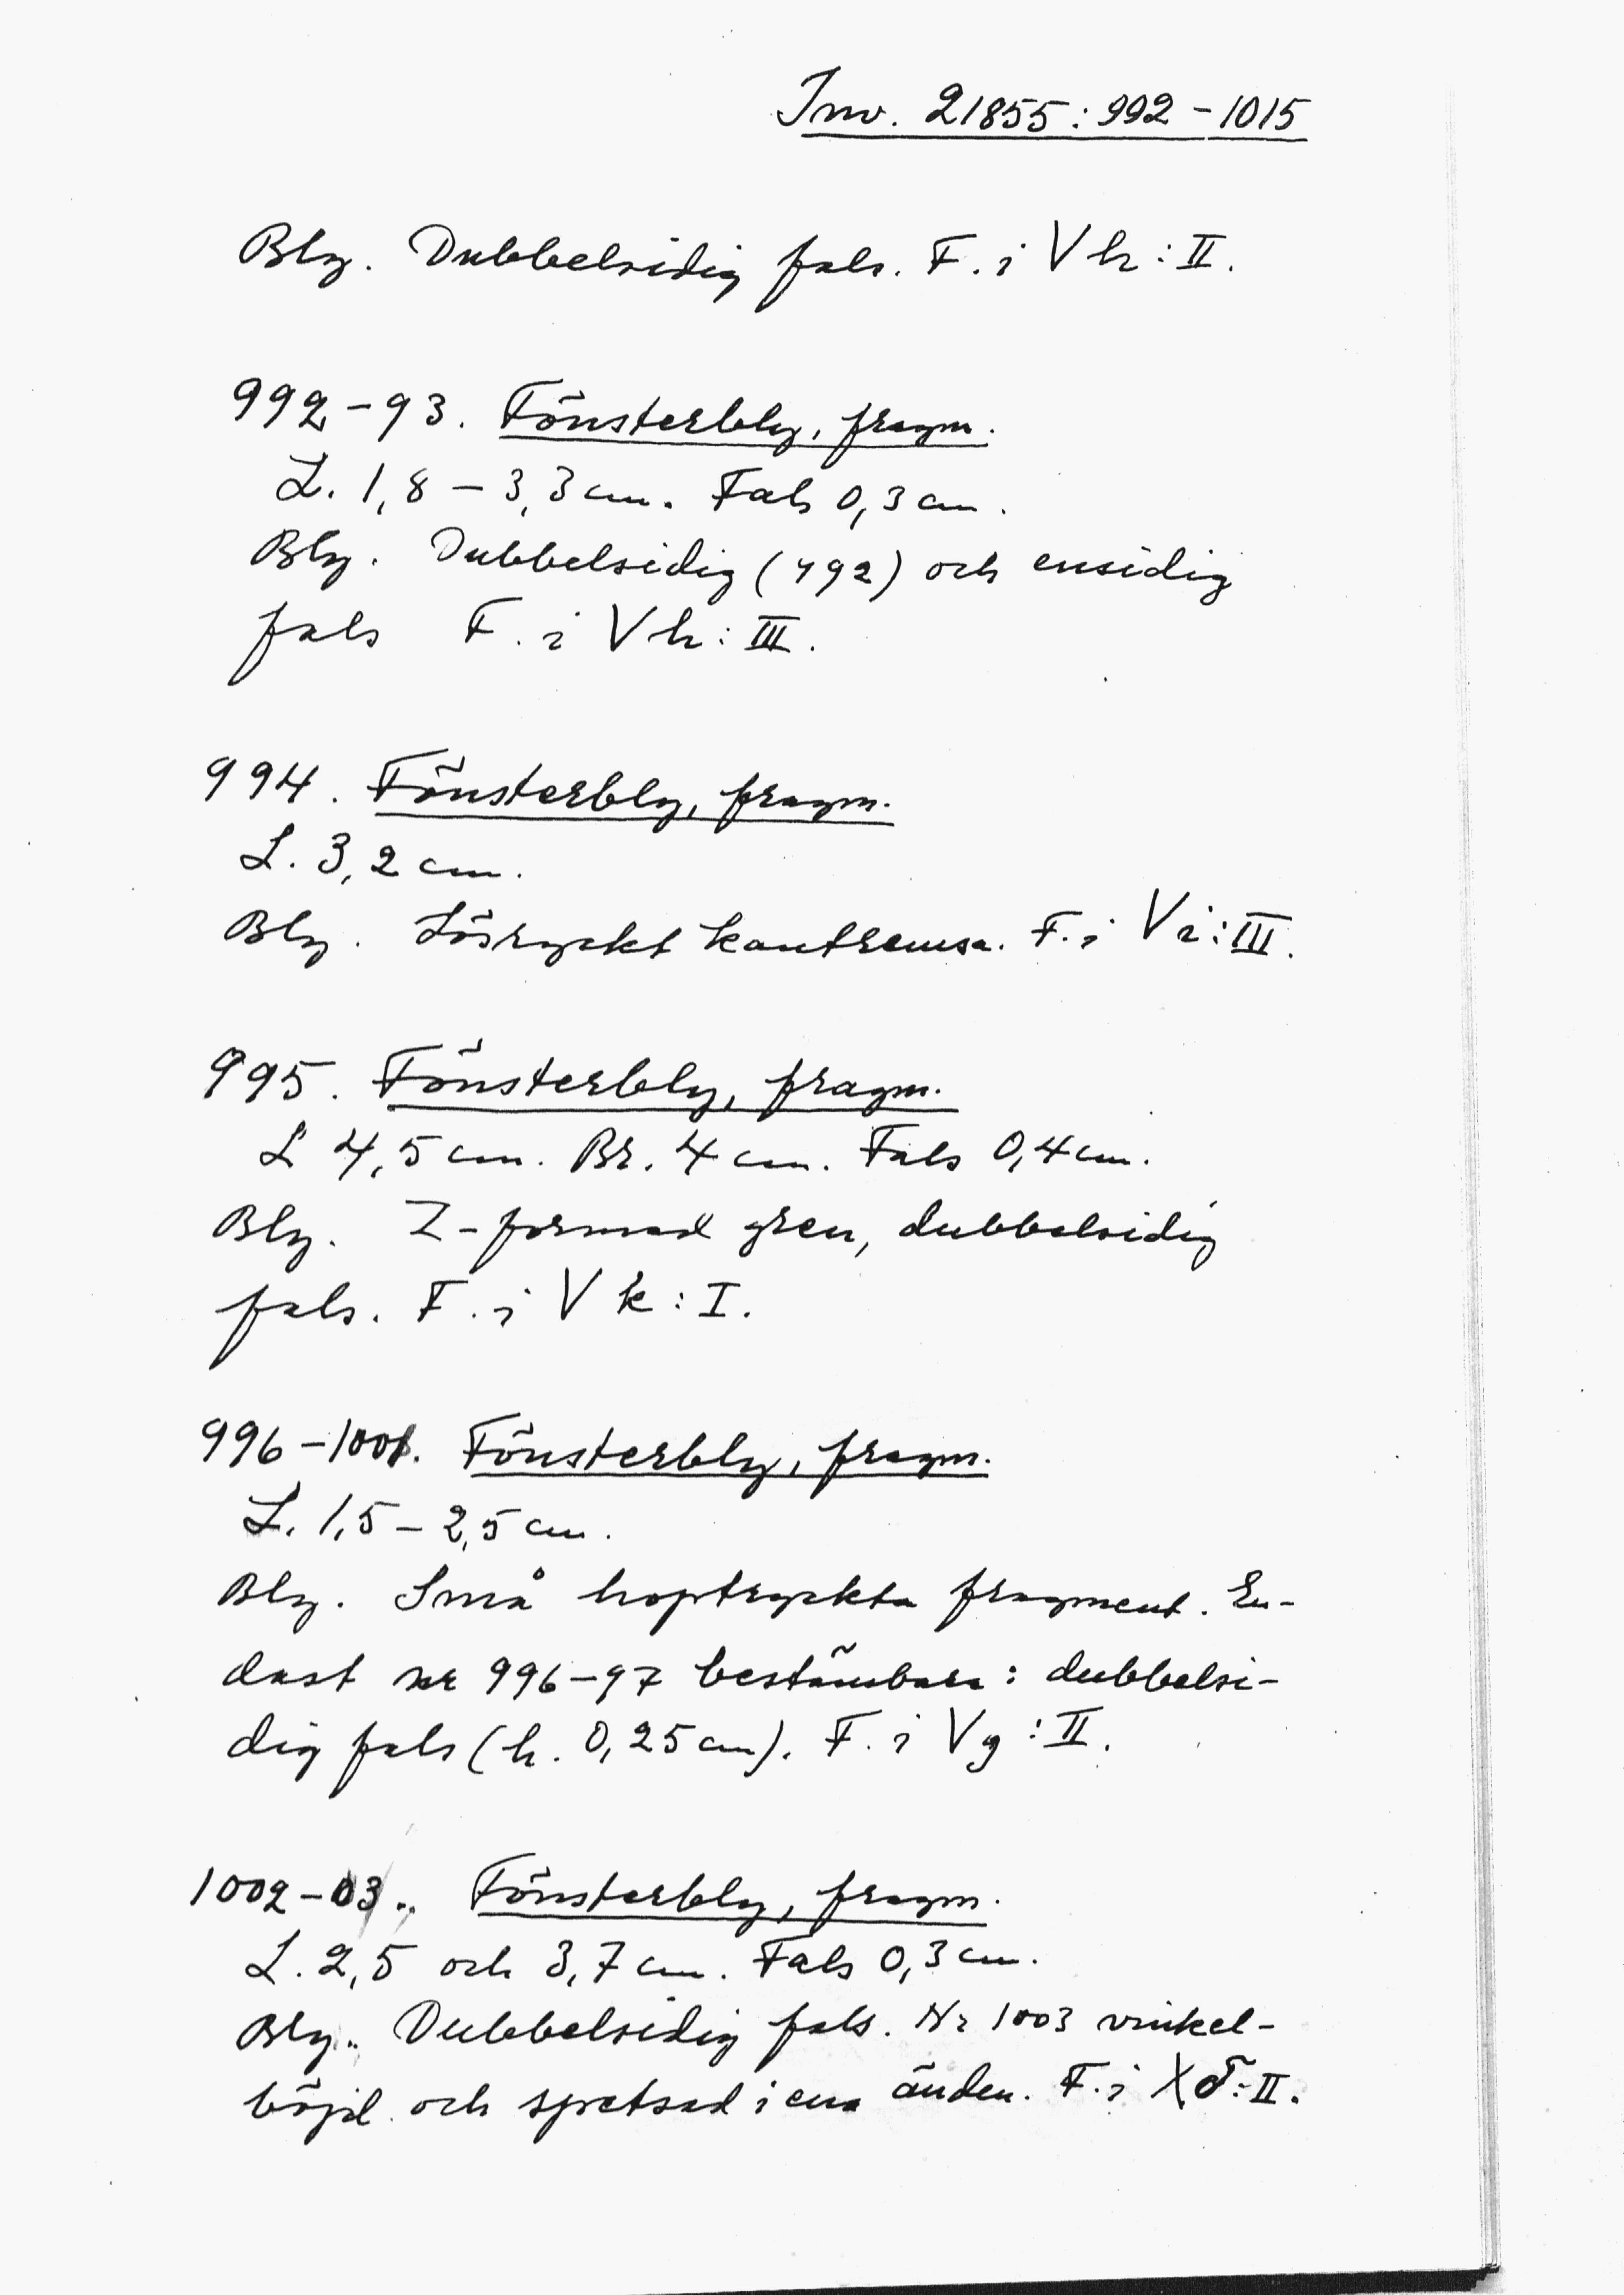 Inv. 21855:992-1015
Bly. Dubbelsidig fals. F. i V h:II.
992-93. Fönsterbly, fragm.
L. 1,8 - 3,3 cm. Fals 0,3 cm.
Bly. Dubbelsidig (992) och ensidig
fals F. i V h:III.
994. Fönsterbly, fragm.
L. 3,2 cm.
Bly. Lösryckt kantremsa. F. i V i:III.
995. Fönsterbly, fragm.
L 4,5 cm. Br. 4 cm. Fals 0,4 cm.
Bly. Z-formad gren, dubbelsidig
fals. F. i V k:I.
996-1001. Fönsterbly, fragm.
L. 1,5 - 2,5 cm.
Bly. Små hoptryckta fragment. En-
dast nr 996-97 bestämbara: dubbelsi-
dig fals (h. 0,25 cm). F. i V g:II.
1002-03. Fönsterbly, fragm.
L. 2,5 och 3,7 cm. Fals 0,3 cm.
Bly. Dubbelsidig fals. Nr 1003 vinkel-
böjd och spetsad i ena änden. F. i X δ:II.